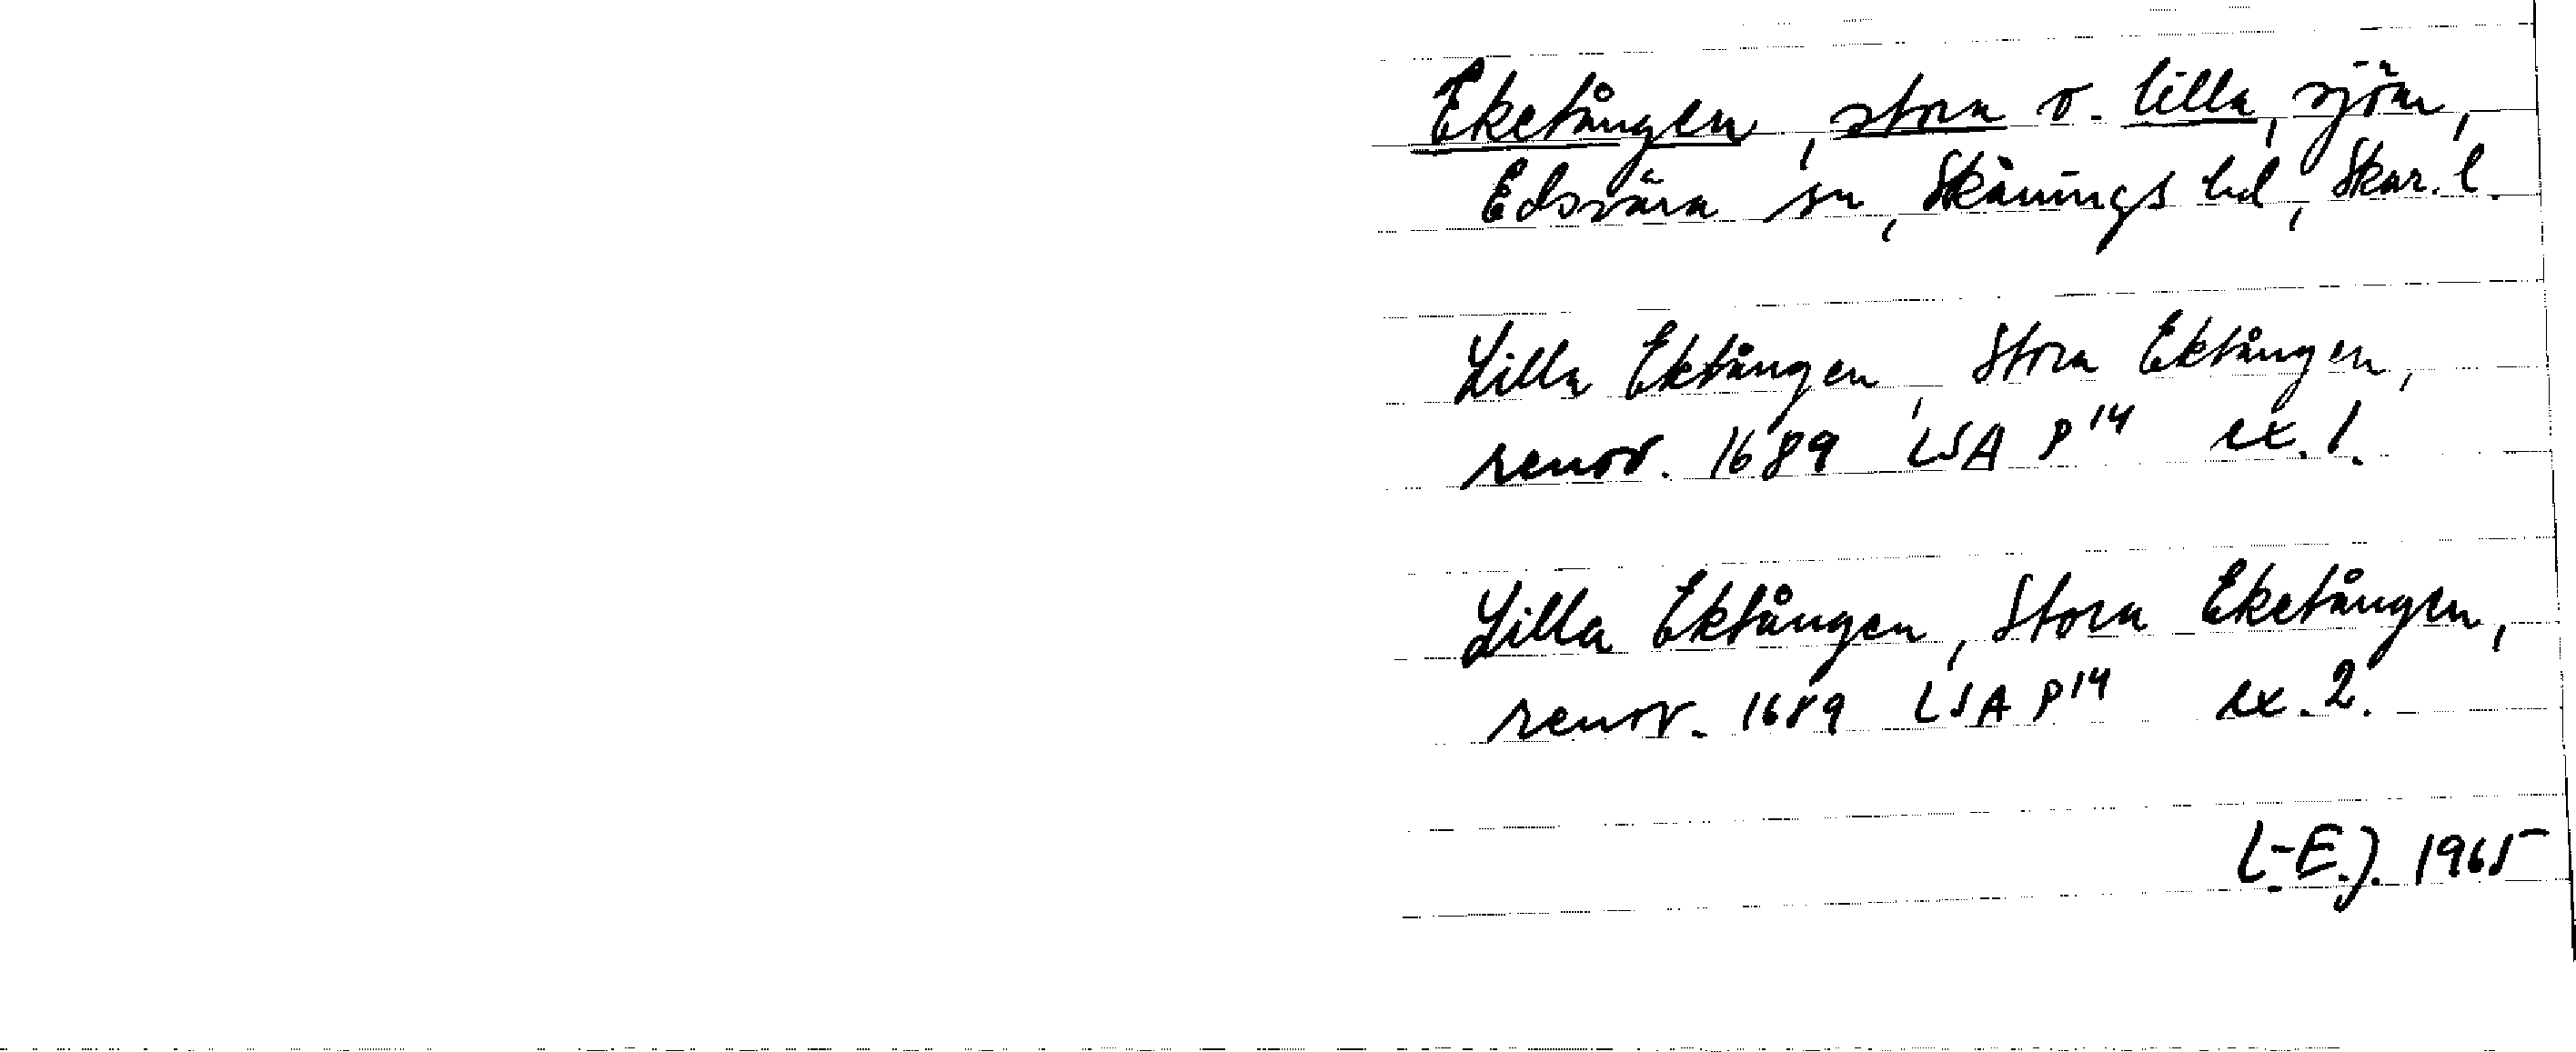 Eketången, stora o. lilla, sjöar,
Edsvära sn, Skånings hd, Skar. l.
Lilla Ektången, Stora Ektången,
renov. 1689 LSA P14 ex. 1.
Lilla Ektången, Stora Eketången,
renov. 1689 LSA P14 ex. 2.
L-E.J. 1965